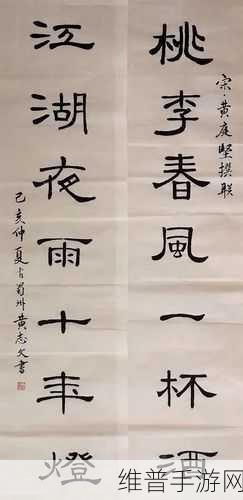 桃李春風一杯酒
宋·黄庭堅撰联
江湖夜雨十年燈
己亥仲夏古蜀州黄志文書
维普手游网